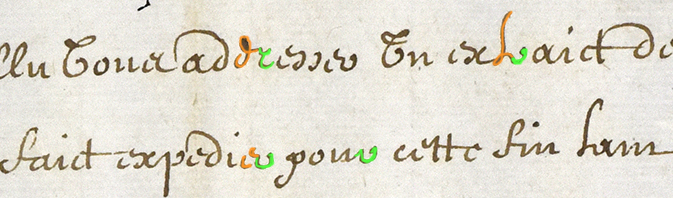 llu Vous addresser Un extraict de
faict expedier pour cette fin sam